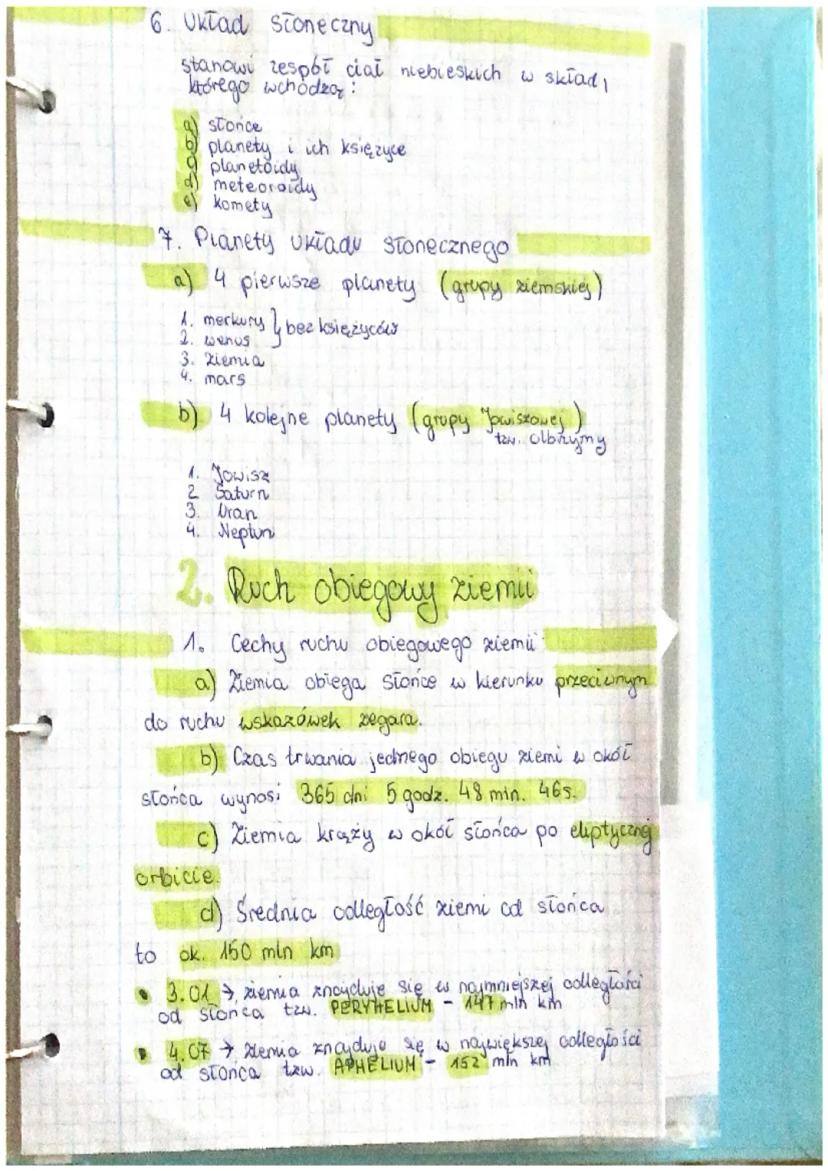 6. Układ Słoneczny
stanowi zespół ciał niebieskich w skład,
którego wchodzą:
a) słońce
b) planety i ich księżyce
c) planetoidy
d) meteoroidy
e) komety
7. Planety układu słonecznego
a) 4 pierwsze planety (grupy ziemskiej)
1. merkury } bez księżyców
2. wenus
3. ziemia
4. mars
b) 4 kolejne planety (grupy Jowiszowej)
tzw. olbrzymy
1. Jowisz
2 Saturn
3. Uran
4. Neptun
2. Ruch obiegowy ziemii
1. Cechy ruchu obiegowego ziemii
a) Ziemia obiega słońce w kierunku przeciwnym
do ruchu wskazówek zegara.
b) Czas trwania jednego obiegu ziemi w okół
słońca wynosi 365 dni 5 godz. 48 min. 46s.
c) Ziemia krąży w okół słońca po eliptycznej
orbicie.
d) Średnia odległość ziemi od słońca
to ok. 150 mln km
• 3.01 → ziemia znajduje się w najmniejszej odległości
od słońca tzw. PERYHELIUM - 147 mln km
• 4.07 → ziemia znajduje się w największej odległości
od słońca tzw. APHELIUM - 152 mln km